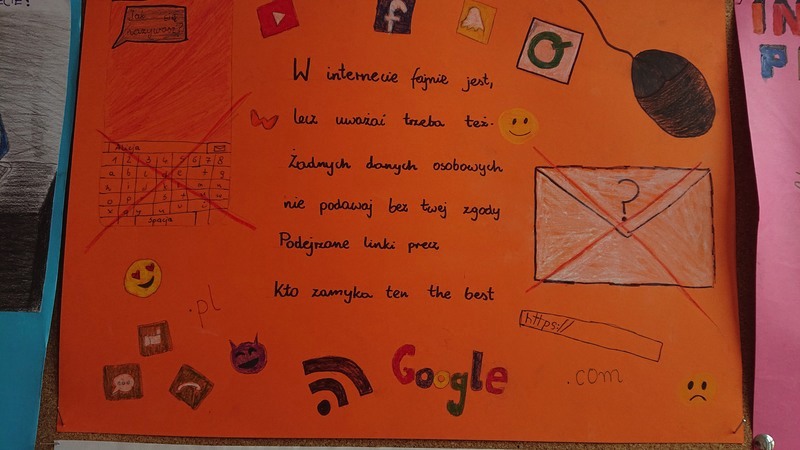 Jak się
nazywasz?
W internecie fajnie jest,
lecz uważać trzeba też.
Żadnych danych osobowych
nie podawaj bez twej zgody
Podejrzane linki precz
Kto zamyka ten the best
Alicja
1 2 3 4 5 6 7 8
spacja
?
.pl
https://
Google
.com
IN
P